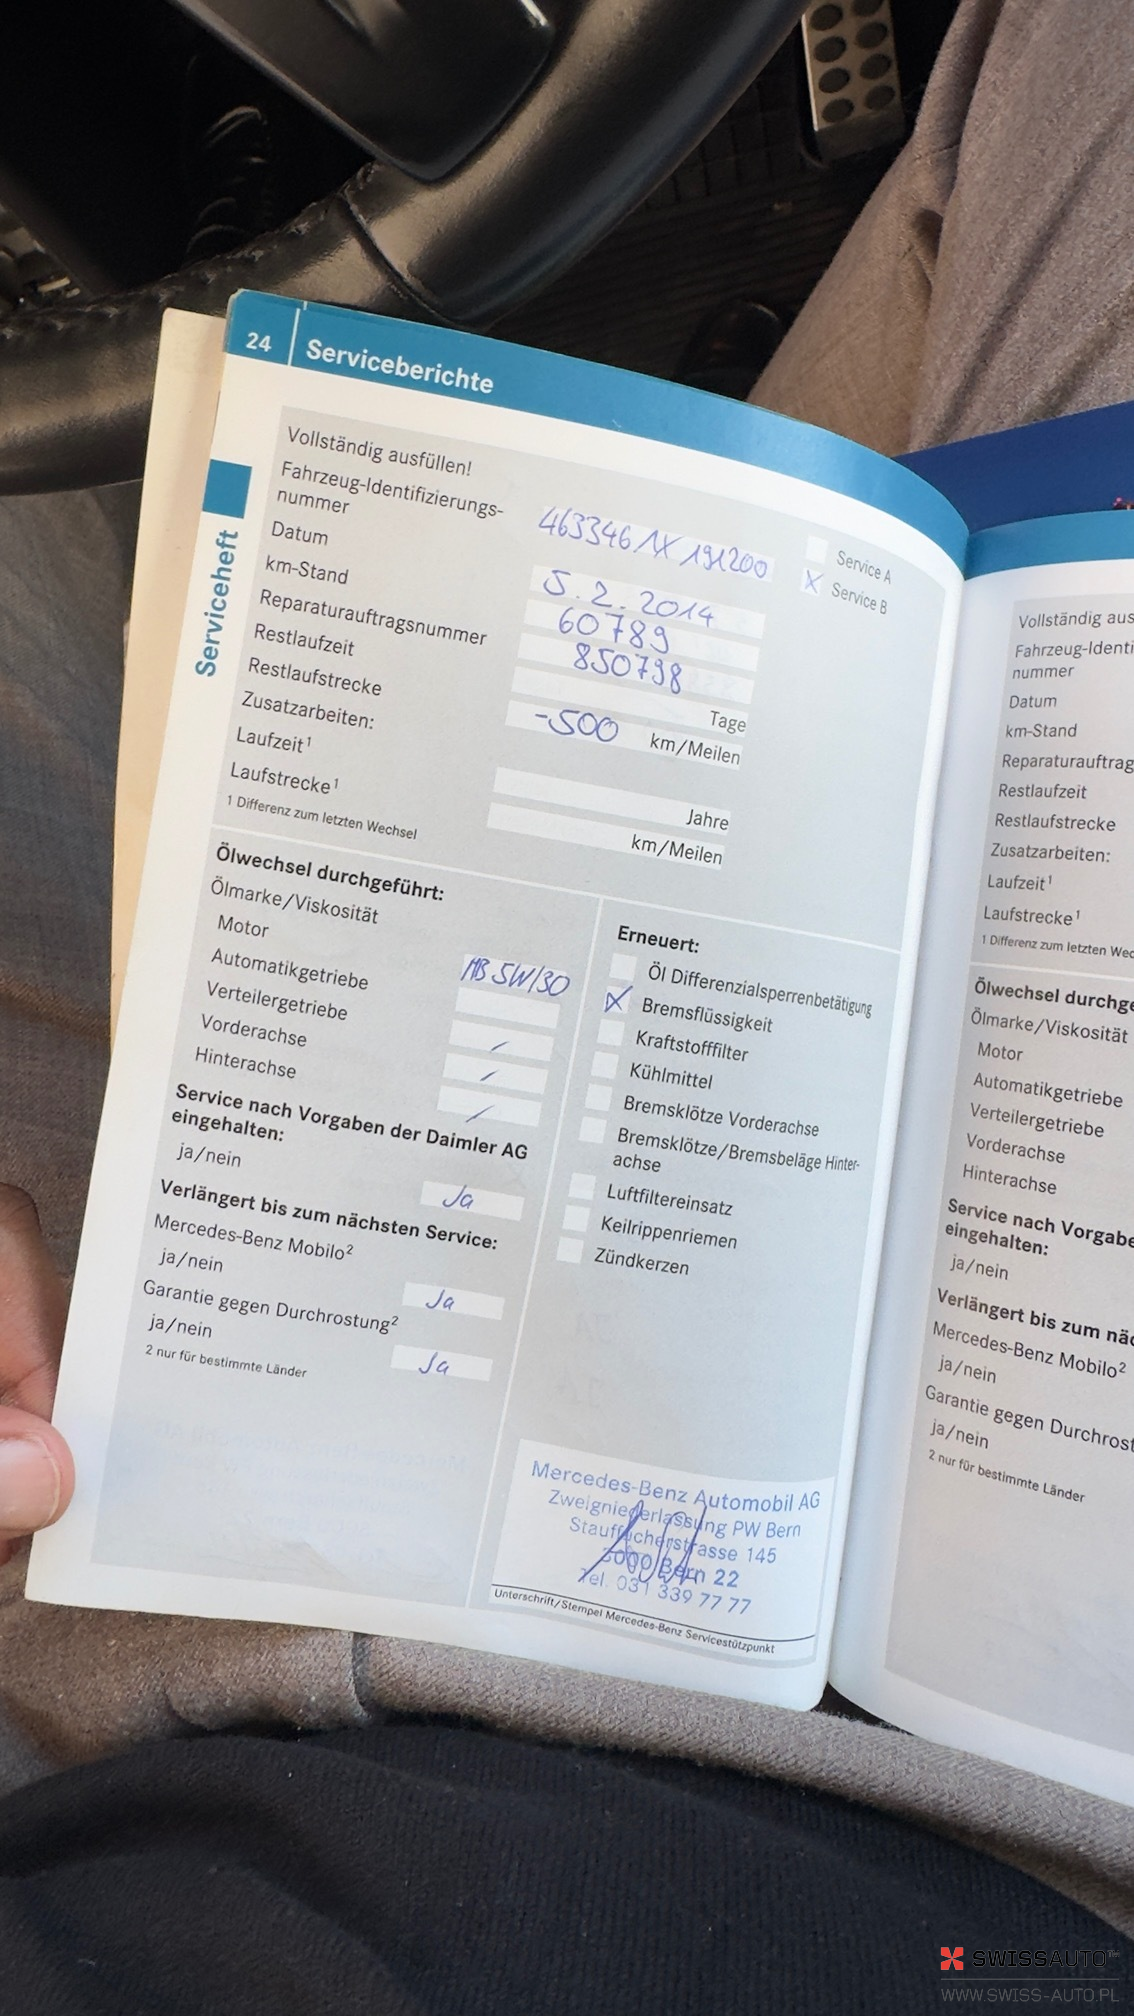 24 Serviceberichte
Serviceheft
Vollständig ausfüllen!
Fahrzeug-Identifizierungs-
nummer 463346 1X 191200
Service A
X Service B
Datum 5.2.2014
km-Stand 60789
Reparaturauftragsnummer 850798
Restlaufzeit Tage
Restlaufstrecke -500 km/Meilen
Zusatzarbeiten:
Laufzeit¹ Jahre
Laufstrecke¹ km/Meilen
1 Differenz zum letzten Wechsel
Ölwechsel durchgeführt:
Ölmarke/Viskosität
Motor MB 5W/30
Automatikgetriebe
Verteilergetriebe /
Vorderachse /
Hinterachse /
Service nach Vorgaben der Daimler AG
eingehalten:
ja/nein Ja
Verlängert bis zum nächsten Service:
Mercedes-Benz Mobilo²
ja/nein Ja
Garantie gegen Durchrostung²
ja/nein Ja
2 nur für bestimmte Länder
Erneuert:
Öl Differenzialsperrenbetätigung
X Bremsflüssigkeit
Kraftstofffilter
Kühlmittel
Bremsklötze Vorderachse
Bremsklötze/Bremsbeläge Hinter-
achse
Luftfiltereinsatz
Keilrippenriemen
Zündkerzen
Mercedes-Benz Automobil AG
Zweigniederlassung PW Bern
Stauffacherstrasse 145
3000 Bern 22
Tel. 031 339 77 77
Unterschrift/Stempel Mercedes-Benz Servicestützpunkt
Vollständig aus
Fahrzeug-Identi
nummer
Datum
km-Stand
Reparaturauftrag
Restlaufzeit
Restlaufstrecke
Zusatzarbeiten:
Laufzeit¹
Laufstrecke¹
1 Differenz zum letzten Wec
Ölwechsel durchge
Ölmarke/Viskosität
Motor
Automatikgetriebe
Verteilergetriebe
Vorderachse
Hinterachse
Service nach Vorgabe
eingehalten:
ja/nein
Verlängert bis zum näc
Mercedes-Benz Mobilo²
ja/nein
Garantie gegen Durchrost
ja/nein
2 nur für bestimmte Länder
SWISSAUTO™
WWW.SWISS-AUTO.PL